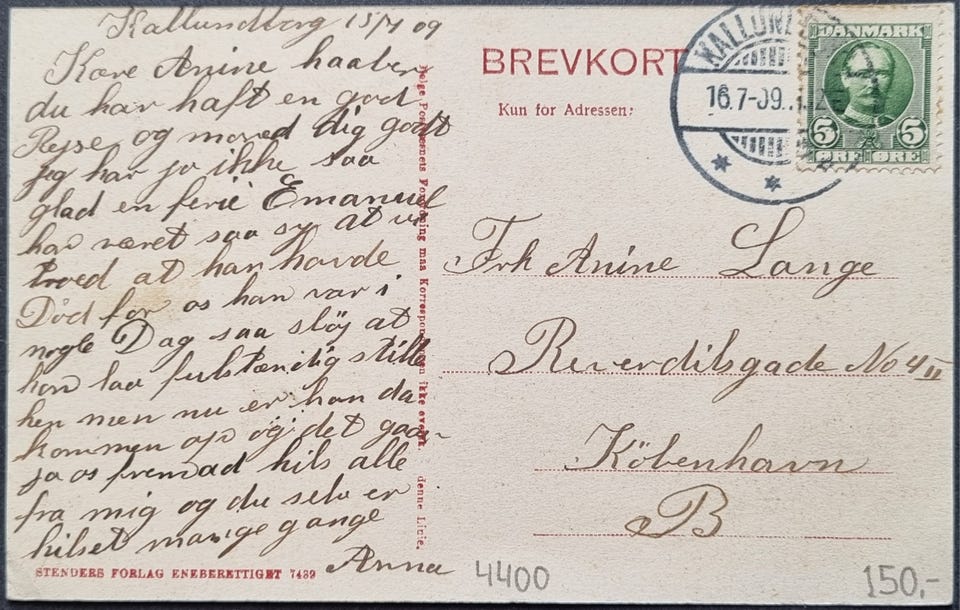 Kallundborg 15/7 09
Kære Anine haaber
du har haft en god
Rejse og mored dig godt
jeg har jo ikke saa
glad en ferie Emanuel
har været saa syg at vi
troed at han havde
Død for os han var i
nogle Dag saa sløj at
han laa fulstændig stille
hen men nu er han da
kommen op og det gaar
jo os fremad hils alle
fra mig og du selv er
hilset mange gange
Anna
STENDERS FORLAG ENEBERETTIGET 7489
Ifølge Postvæsnets Forordning maa Korrespondancen ikke overskr. denne Linie.
BREVKORT
Kun for Adressen:
KALLUND
16.7-09.
DANMARK
5 5
ØRE ØRE
Frk Anine Lange
Reverdilsgade No 4 II
Köbenhavn
B
4400
150,-